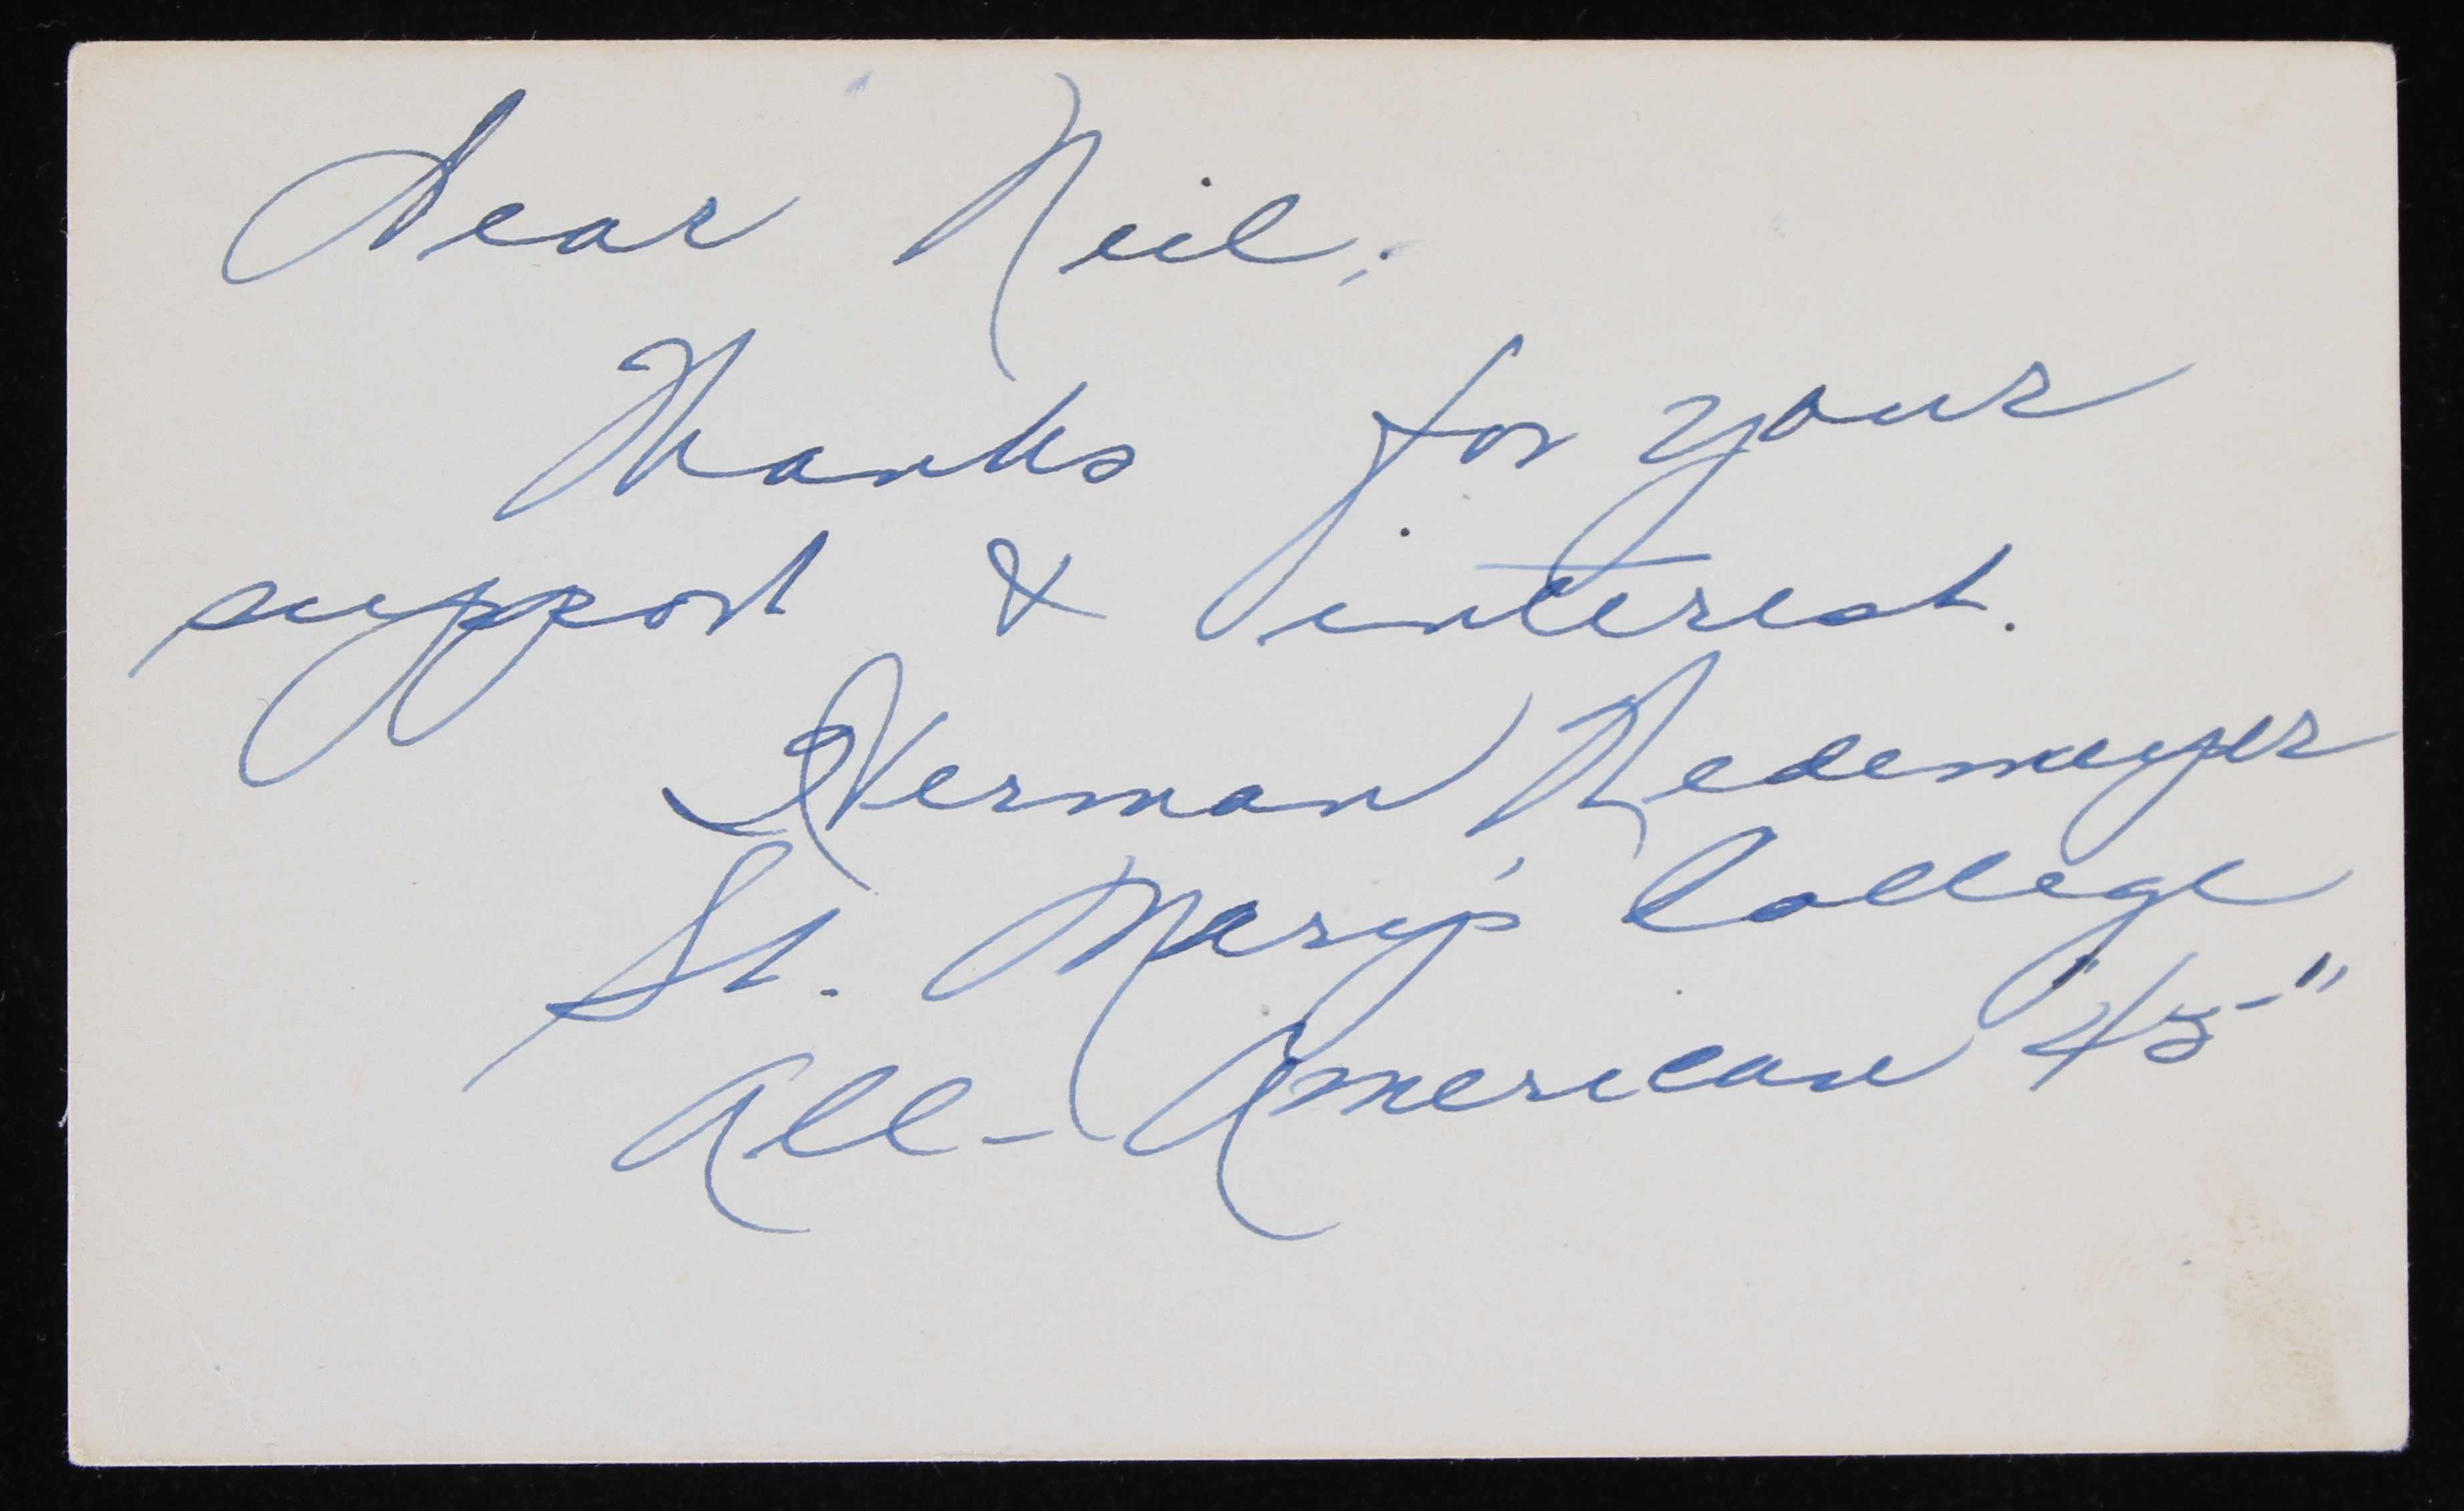 Dear Neil;
Thanks for your
support & interest.
Herman Wedemeyer
St. Mary's College
All-American "45"